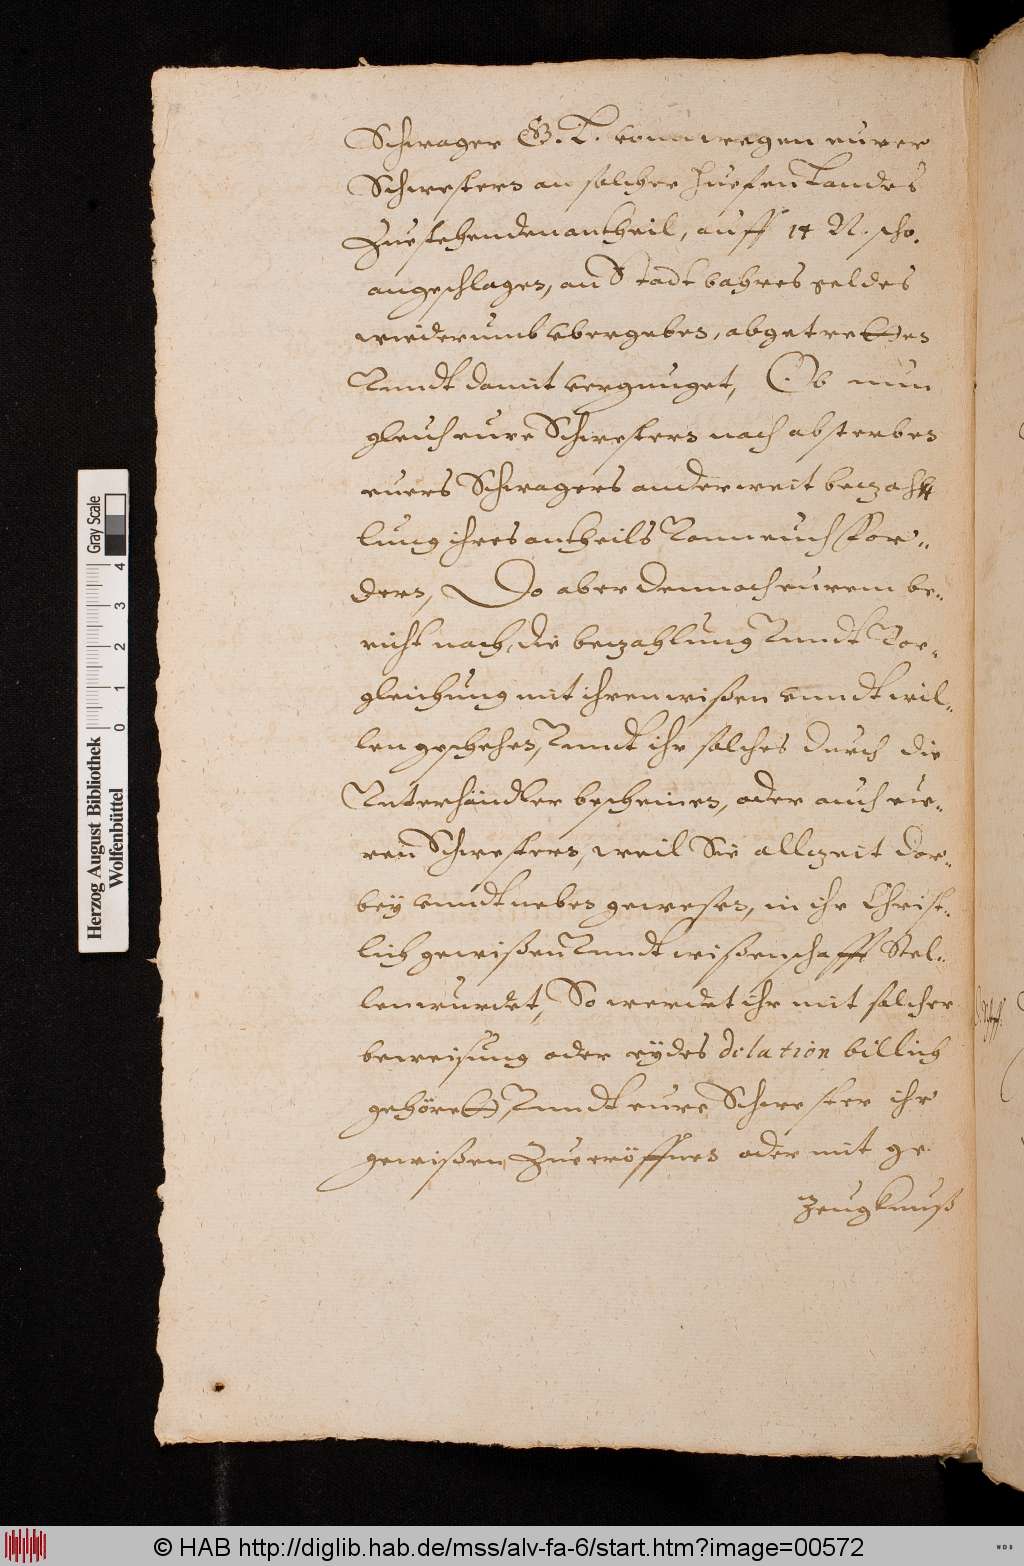 Schwager G. L. vonn wegen eurer
Schwestern an solcher Huefen Landes
Zuestehenden antheil, auff 14 N. ßo.
angeschlagen, an Stadt bahres geldes
wiederumb vbergeben, abgetretten
Vnndt damit vergnuget, Ob nun
gleich eure Schwestern nach absterben
euers Schwagers anderweit bezah-
lung ihres antheils Vonn euch For-
dern, Do aber dennoch eurem be-
richt nach, die bezahlung Vnndt Vor-
gleichung mit ihren wißen vnndt wil-
len geschehen, Vnndt ihr solches durch die
Vnterhändler bescheinen, oder auch eu-
ren Schwestern, weil Sie allezeit Dar-
bey vnndt neben gewesen, in ihr Christ-
lich gewißen Vnndt wißenschafft Stel-
len wurdet, So werdet ihr mit solcher
beweisung oder eydes delation billich
gehörett, Vnndt eure Schwester ihr
gewißen Zueeröffnen oder mit ge-
Zeugknuß
Herzog August Bibliothek
Wolfenbüttel
Gray Scale
0 1 2 3 4
© HAB http://diglib.hab.de/mss/alv-fa-6/start.htm?image=00572